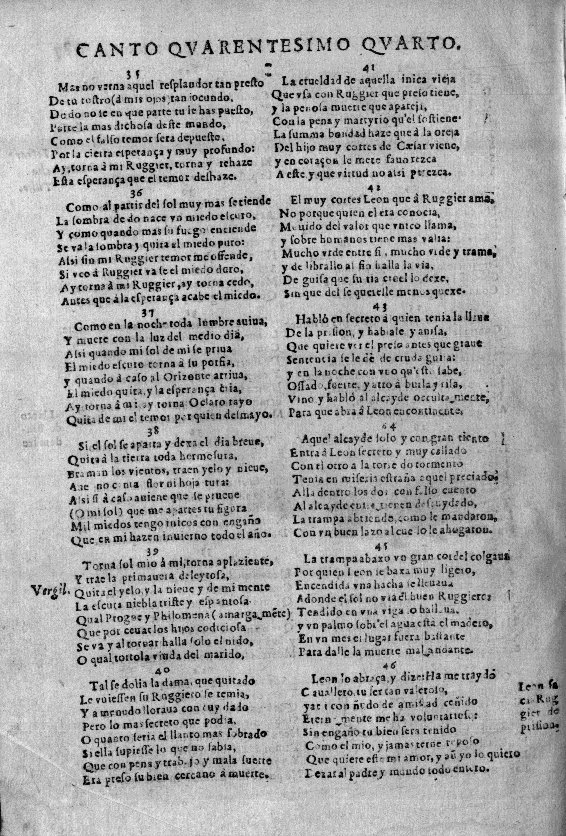 CANTO QVARENTESIMO QVARTO.
35
Mas no verna aquel resplandor tan presto
De tu rostro a mis ojos tan iocundo,
De do no se en que parte tu le has puesto,
la mas dichosa deste mundo,
Como el falso temor sera depuesto,
Por la cierta esperança y muy profundo:
Ay, torna à mi Ruggier, torna y rehaze
Esta esperança que el temor deshaze.
36
Como al partir del sol muy mas se tiende
La sombra de do nace vn miedo escuro,
Y como quando mas su fuego enciende
Se va la sombra y quita el miedo puro:
Assi sin mi Ruggier temor me offende,
Si veo à Ruggier va se el miedo duro,
Ay torna à mi Ruggier, ay torna cedo,
Antes que à la esperança acabe el miedo.
37
Como en la noche toda lumbre auiua,
Y muere con la luz del medio dia,
Assi quando mi sol de mi se priua
El miedo escuro torna à su porfia,
Y quando à caso al Orizonte arriua,
El miedo quita, y la esperança cria,
Ay torna à mi, ay torna O claro rayo
Quita de mi el temor por quien desmayo.
38
Si el sol se aparta y dexa el dia breue,
Quita à la tierra toda hermosura:
Braman los vientos, traen yelo y nieue,
Aue no canta flor ni hoja tura:
Assi si à caso auiene que se prueue
(O mi sol) que me apartes tu figura
Mil miedos tengo inicos con engaño
Que en mi hazen inuierno todo el año.
39
Torna sol mio à mi, torna aplaziente,
Y trae la primauera deleytosa,
Vergil.
Quita el yelo, y la nieue y de mi mente
La escura niebla triste y espantosa.
Qual Progne y Philomena (amargamẽte)
Que por ceuar los hijos codiciosa
Se va y al tornar halla solo el nido,
O qual tortola viuda del marido,
40
Tal se dolia la dama, que quitado
Le vuiessen su Ruggiero se temia,
Y a menudo lloraua con cuydado
Pero lo mas secreto que podia,
O quanto seria el llanto mas sobrado
Si ella supiesse lo que no sabia,
Que con pena y trabajo y mala suerte
Era preso su bien cercano à muerte.
41
La crueldad de aquella inica vieja
Que vsa con Ruggier que preso tiene,
Y la penosa muerte que apareja,
Con la pena y martyrio qu'el sostiene
La summa bondad haze que à la oreja
Del hijo muy cortes de Cæsar viene,
Y en coraçon le mete
A este y que virtud no assi perezca.
42
El muy cortes Leon que à Ruggier ama,
No porque quien el era conocia,
Mouido del valor que vnico llama,
Y sobre humanos tiene mas valia:
Mucho vrde entre si, mucho vrde y trama,
Y de librallo al fin halla la via,
De guisa que su tia cruel lo dexe,
Sin que del se querelle me nos quexe.
43
Habló en secreto à quien tenia la llaue
De la prision, y hablale y auisa,
Que quiere ver el preso antes que graue
Sentencia se le dè de cruda guisa:
Y en la noche con vno qu'este sabe,
Ossado, fuerte, y atto à burla y risa,
Vino y habló al alcayde occultamente,
Para que abra à Leon encontinente.
64
Aquel alcayde solo y con gran tiento
Entra à Leon secreto y muy callado
Con el otro a la torre do tormento
Tenia en miseria estraña aquel preciado,
Alla dentro los dos con falso cuento
Al alcayde descuydado,
La trampa abriendo, como le mandaron,
Con vn buen lazo al cuello le ahogaron.
45
La trampa abaxo vn gran cordel colgaua
Por quien Leon se baxa muy ligero,
Encendida vna hacha se lleuaua
Adonde el sol no via el buen Ruggiero:
Tendido en vna viga lo hallaua,
Y vn palmo sob'el agua esta el madero,
En vn mes el lugar fuera bastante
Para dalle la muerte mal andante.
46
Leon lo abraça, y dize: Ha me traydo
Cauallero, tu ser tan valeroso,
con ñudo de amistad ceñido
Eternamente me ha voluntarioso:
Sin engaño tu bien sera tenido
Como el mio, y jamas terne reposo
Que quiere este mi amor, y aũ yo lo quiero
Dexar al padre y mundo todo entero.
Leon sa
ca Rug
gier de
prision.